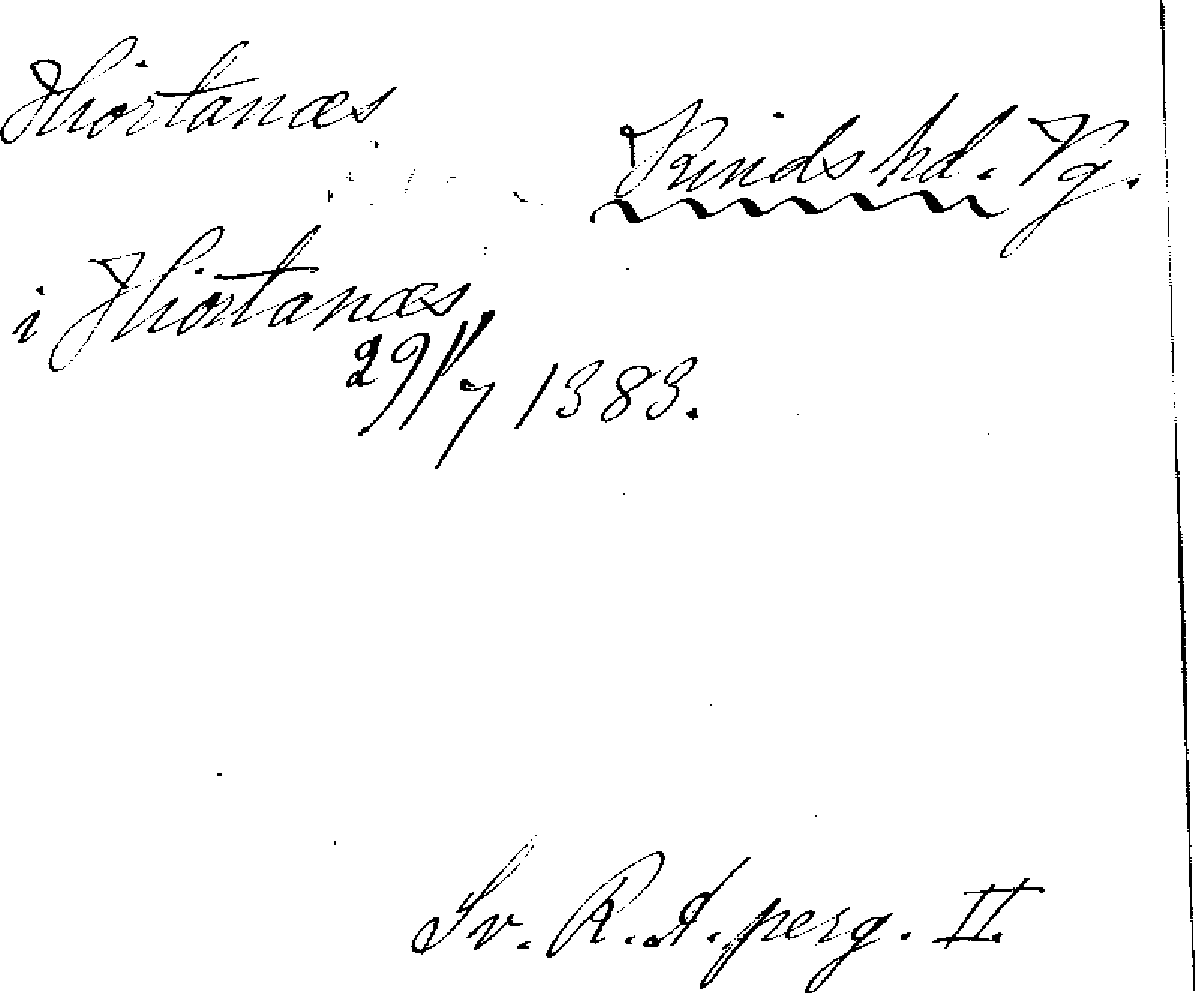 Hiortanæs
Kinds hd. Vg.
i Hiortanæs
29/7 1383.
Sv. R. A. perg. II.